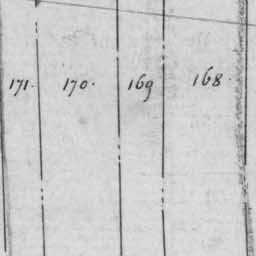 171. 170. 169 168.